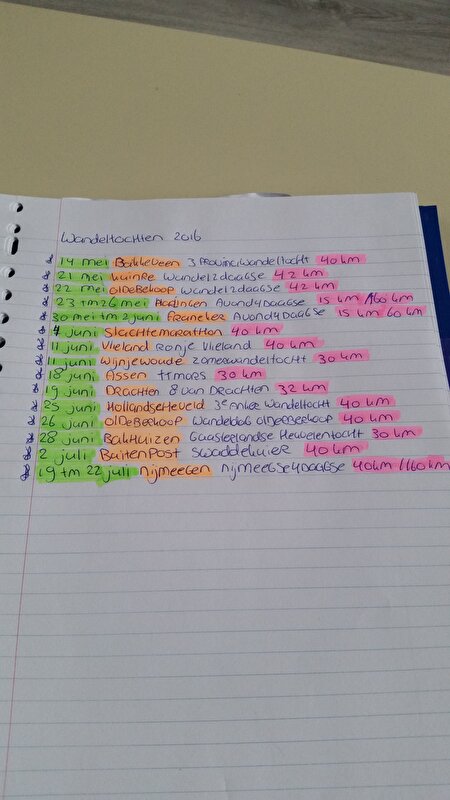 Wandeltochten 2016
14 mei Bakkeveen 3 Provinciwandeltocht 40 km
21 mei kuinre wandel2daagse 42 km
22 mei OldeBerkoop wandel2daagse 42 km
23 tm 26 mei Harlingen Avond4daagse 15 km /60 km
30 mei tm 2 juni Franeker Avond4daagse 15 km 60 km
4 juni Slachtemarathon 40 km
11 juni Vlieland Rondje Vlieland 40 km
11 juni Wijnjewoude zomerwandeltocht 30 km
18 juni Assen ttmars 30 km
19 juni Drachten 8 van Drachten 32 km
25 juni Hollandscheveld 3e Anker Wandeltocht 40 km
26 juni OldeBerkoop Wandeldag Oldeberkoop 40 km
28 juni Bakhuizen Gaasterlandse Heuveltentocht 30 km
2 juli BuitenPost Swaddekuier 40 km
19 tm 22 juli nijmegen nijmeegse4daagse 40 km /160 km